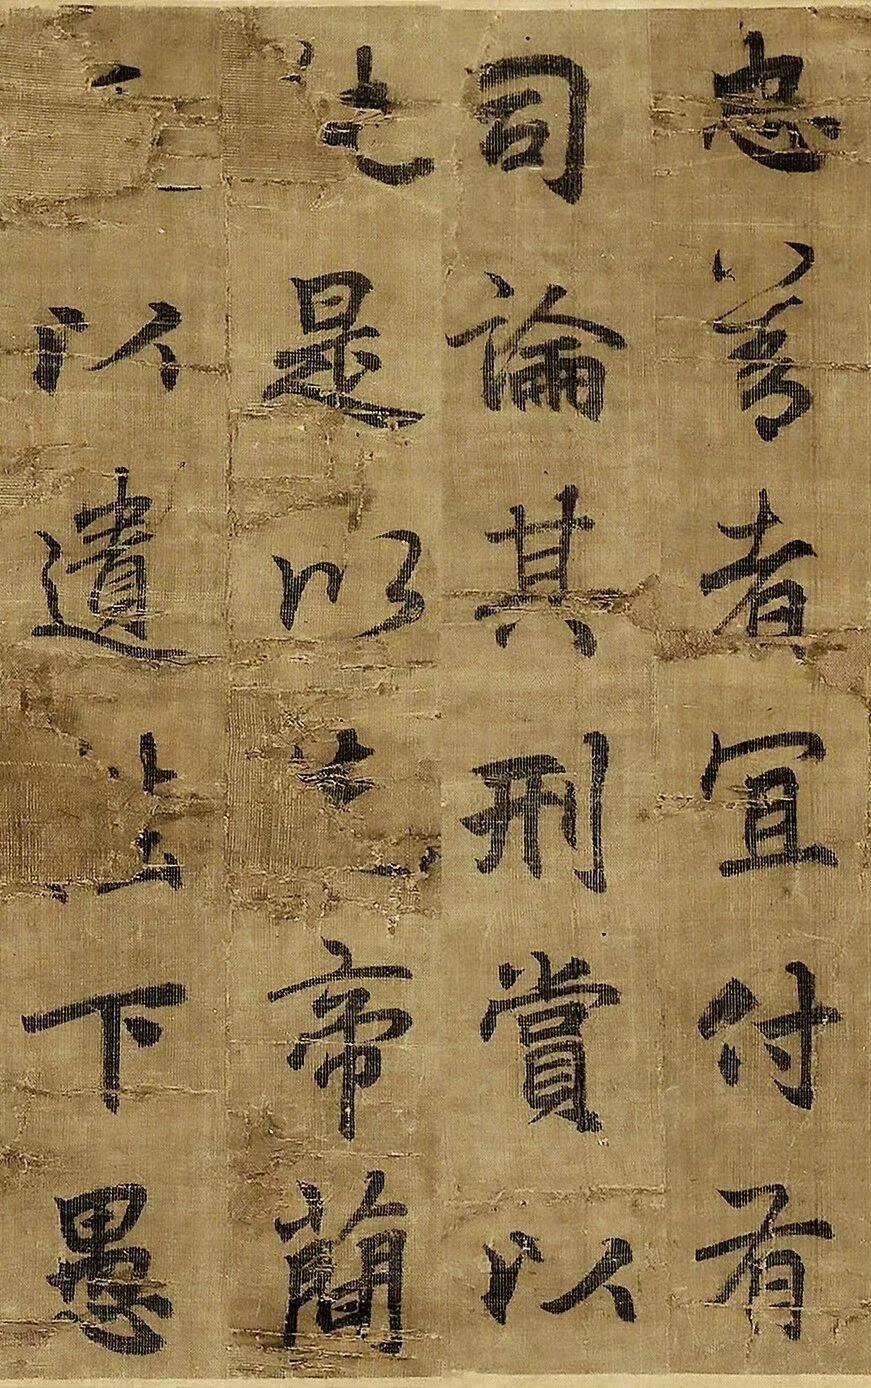 忠善者宜付有
司論其刑賞以
是以帝簡
以遺下愚